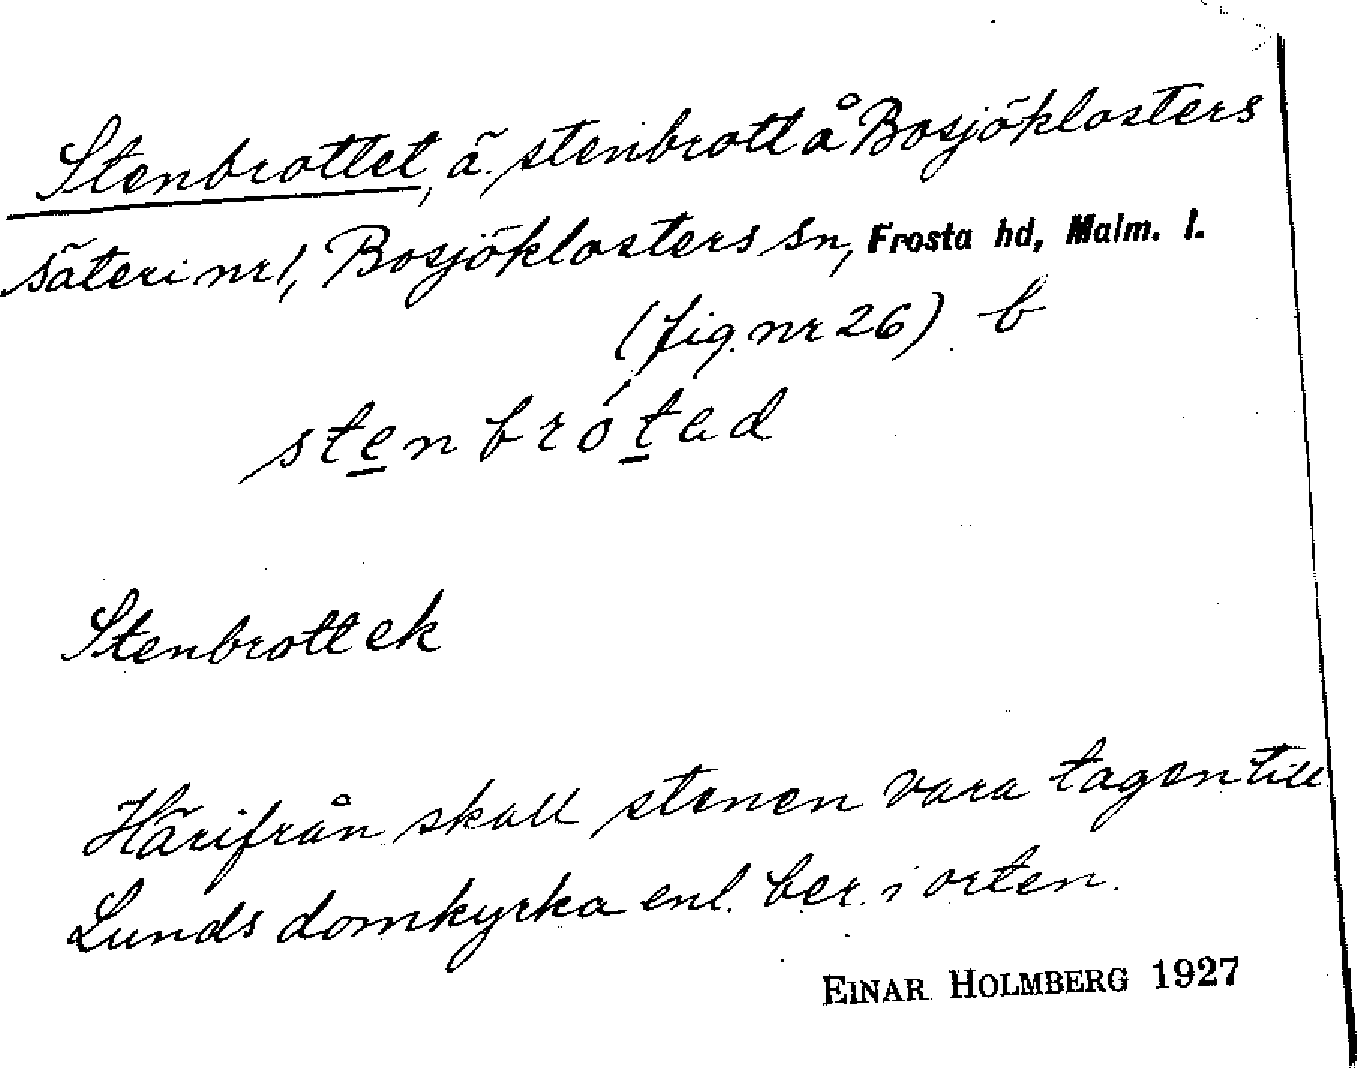 Stenbrottet, ä. stenbrott å Bosjöklosters
säteri nr 1, Bosjöklosters sn, Frosta hd, Malm. l.
(fig. nr 26) b
stenbrótad
Stenbrott ek
Härifrån skall stenen vara tagen till
Lunds domkyrka enl. ber. i orten.
EINAR HOLMBERG 1927